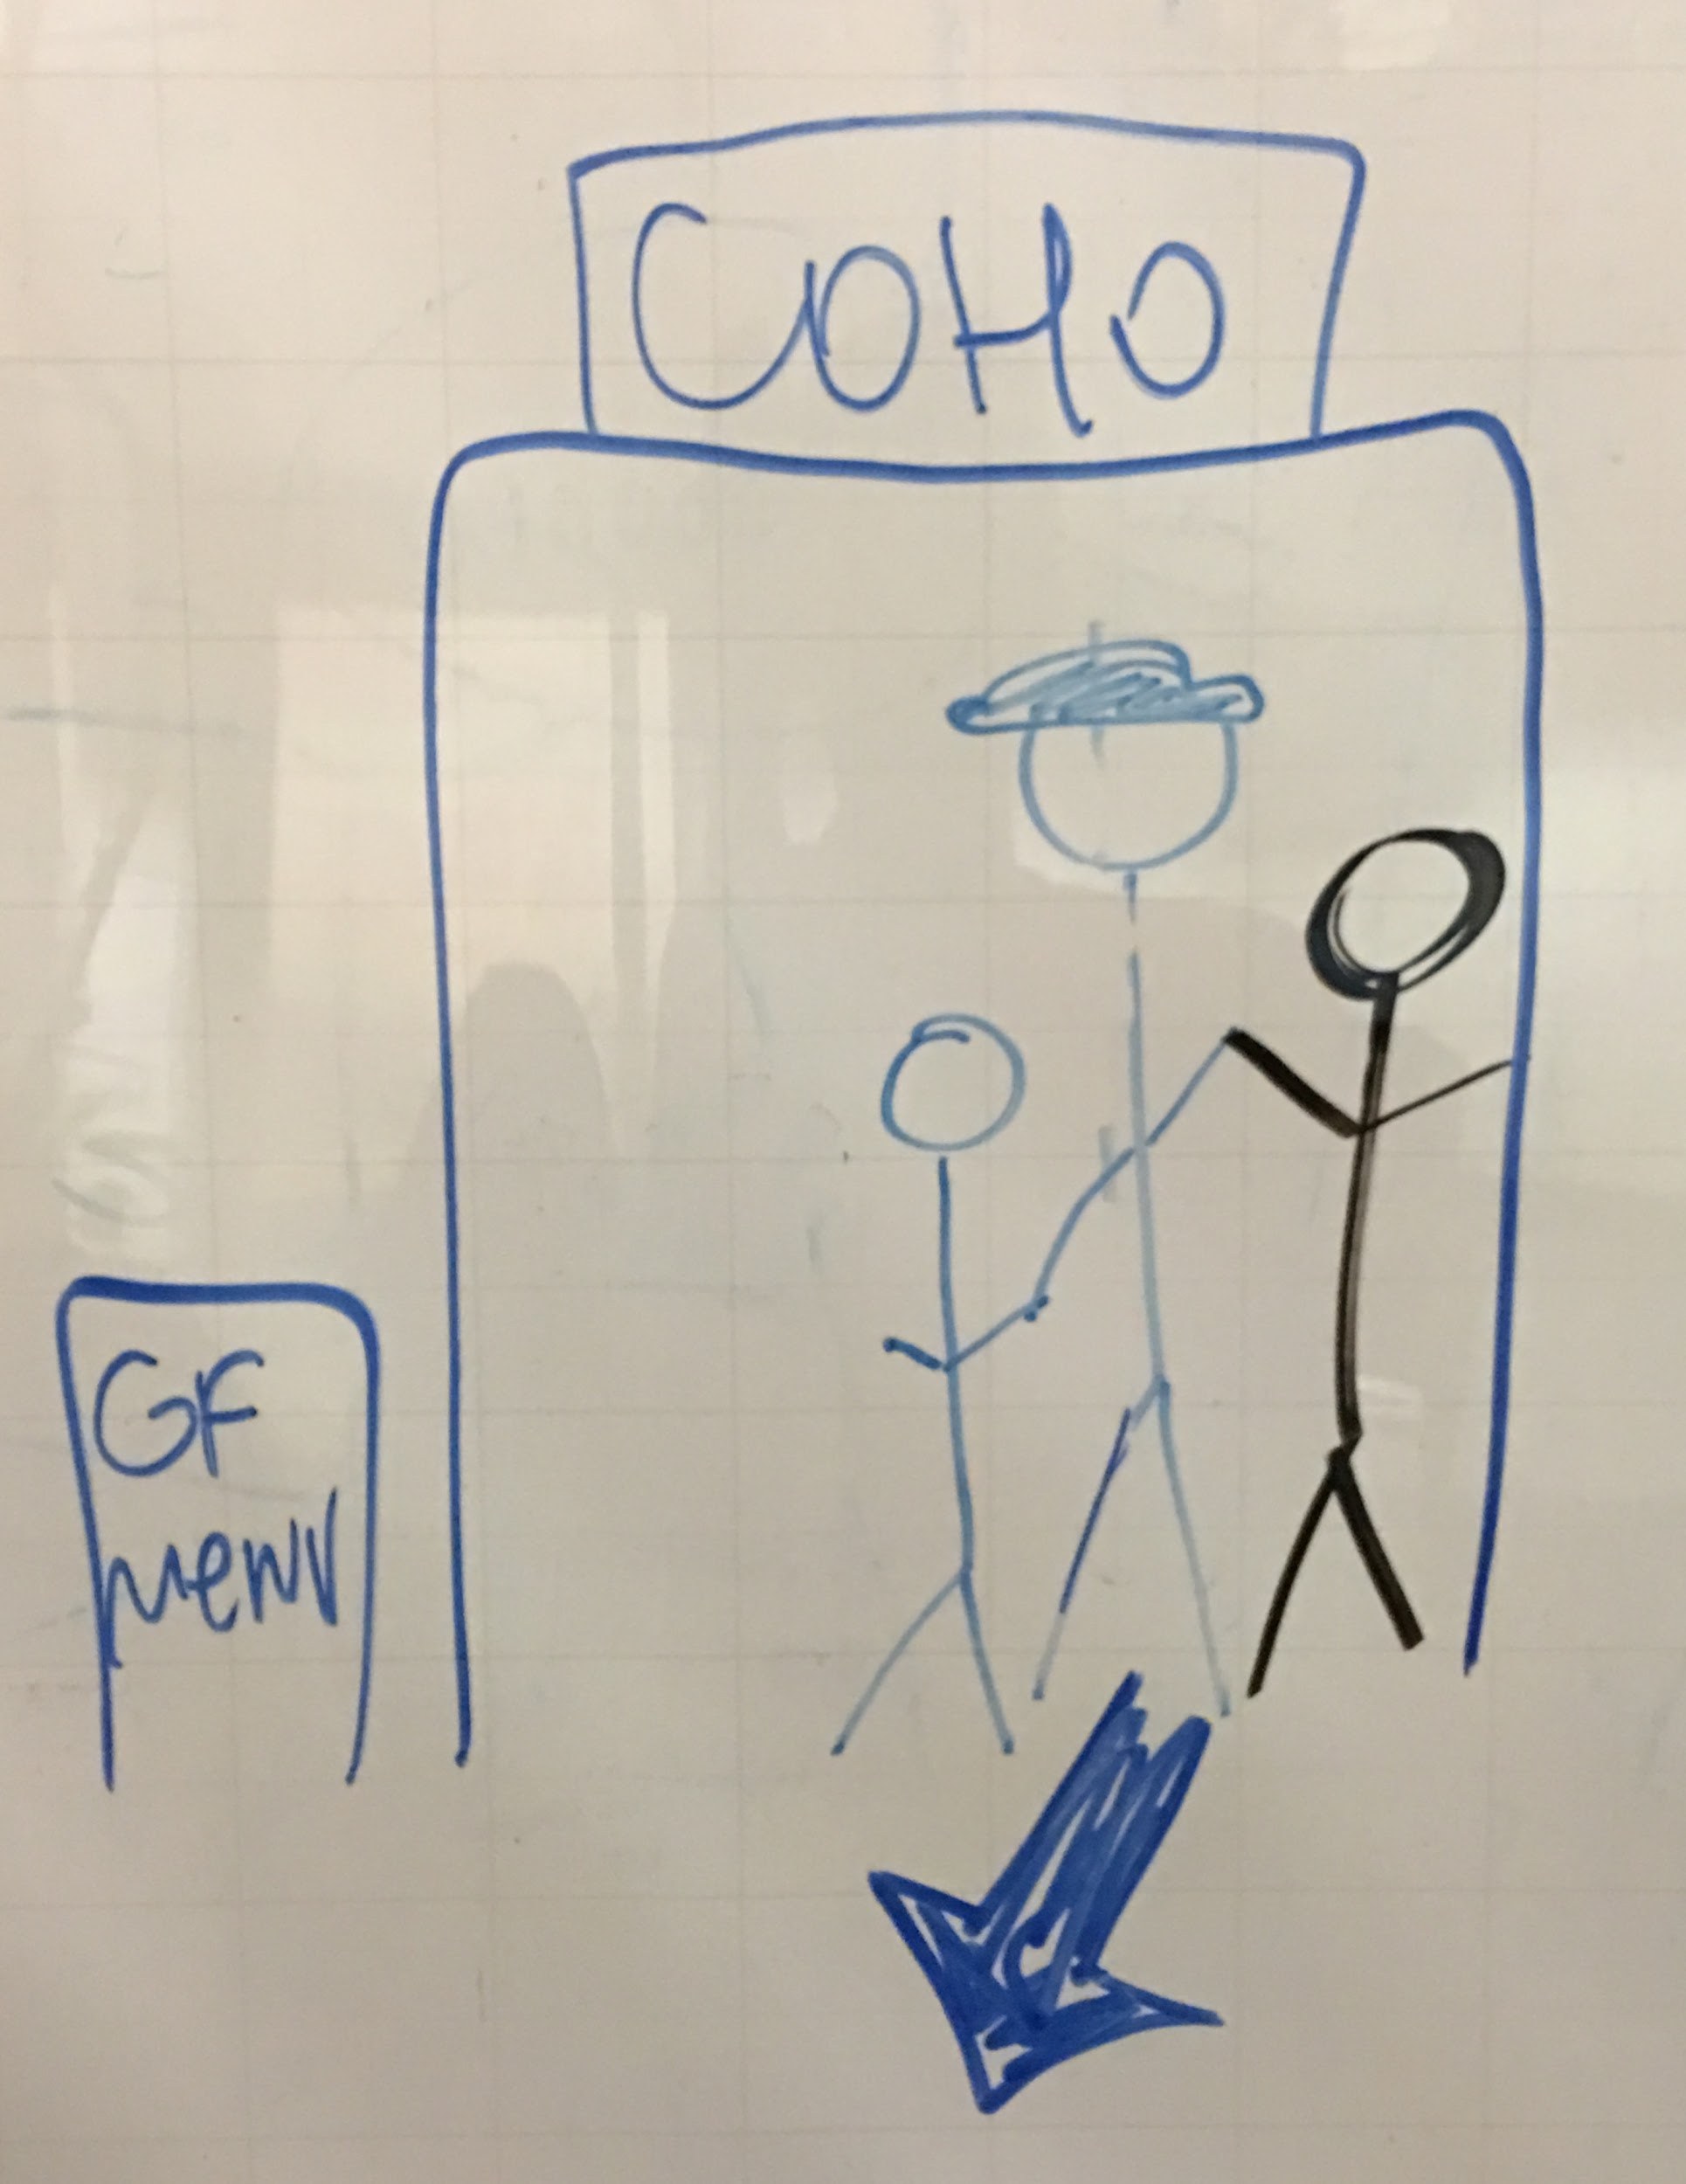 COHO
GF
menu